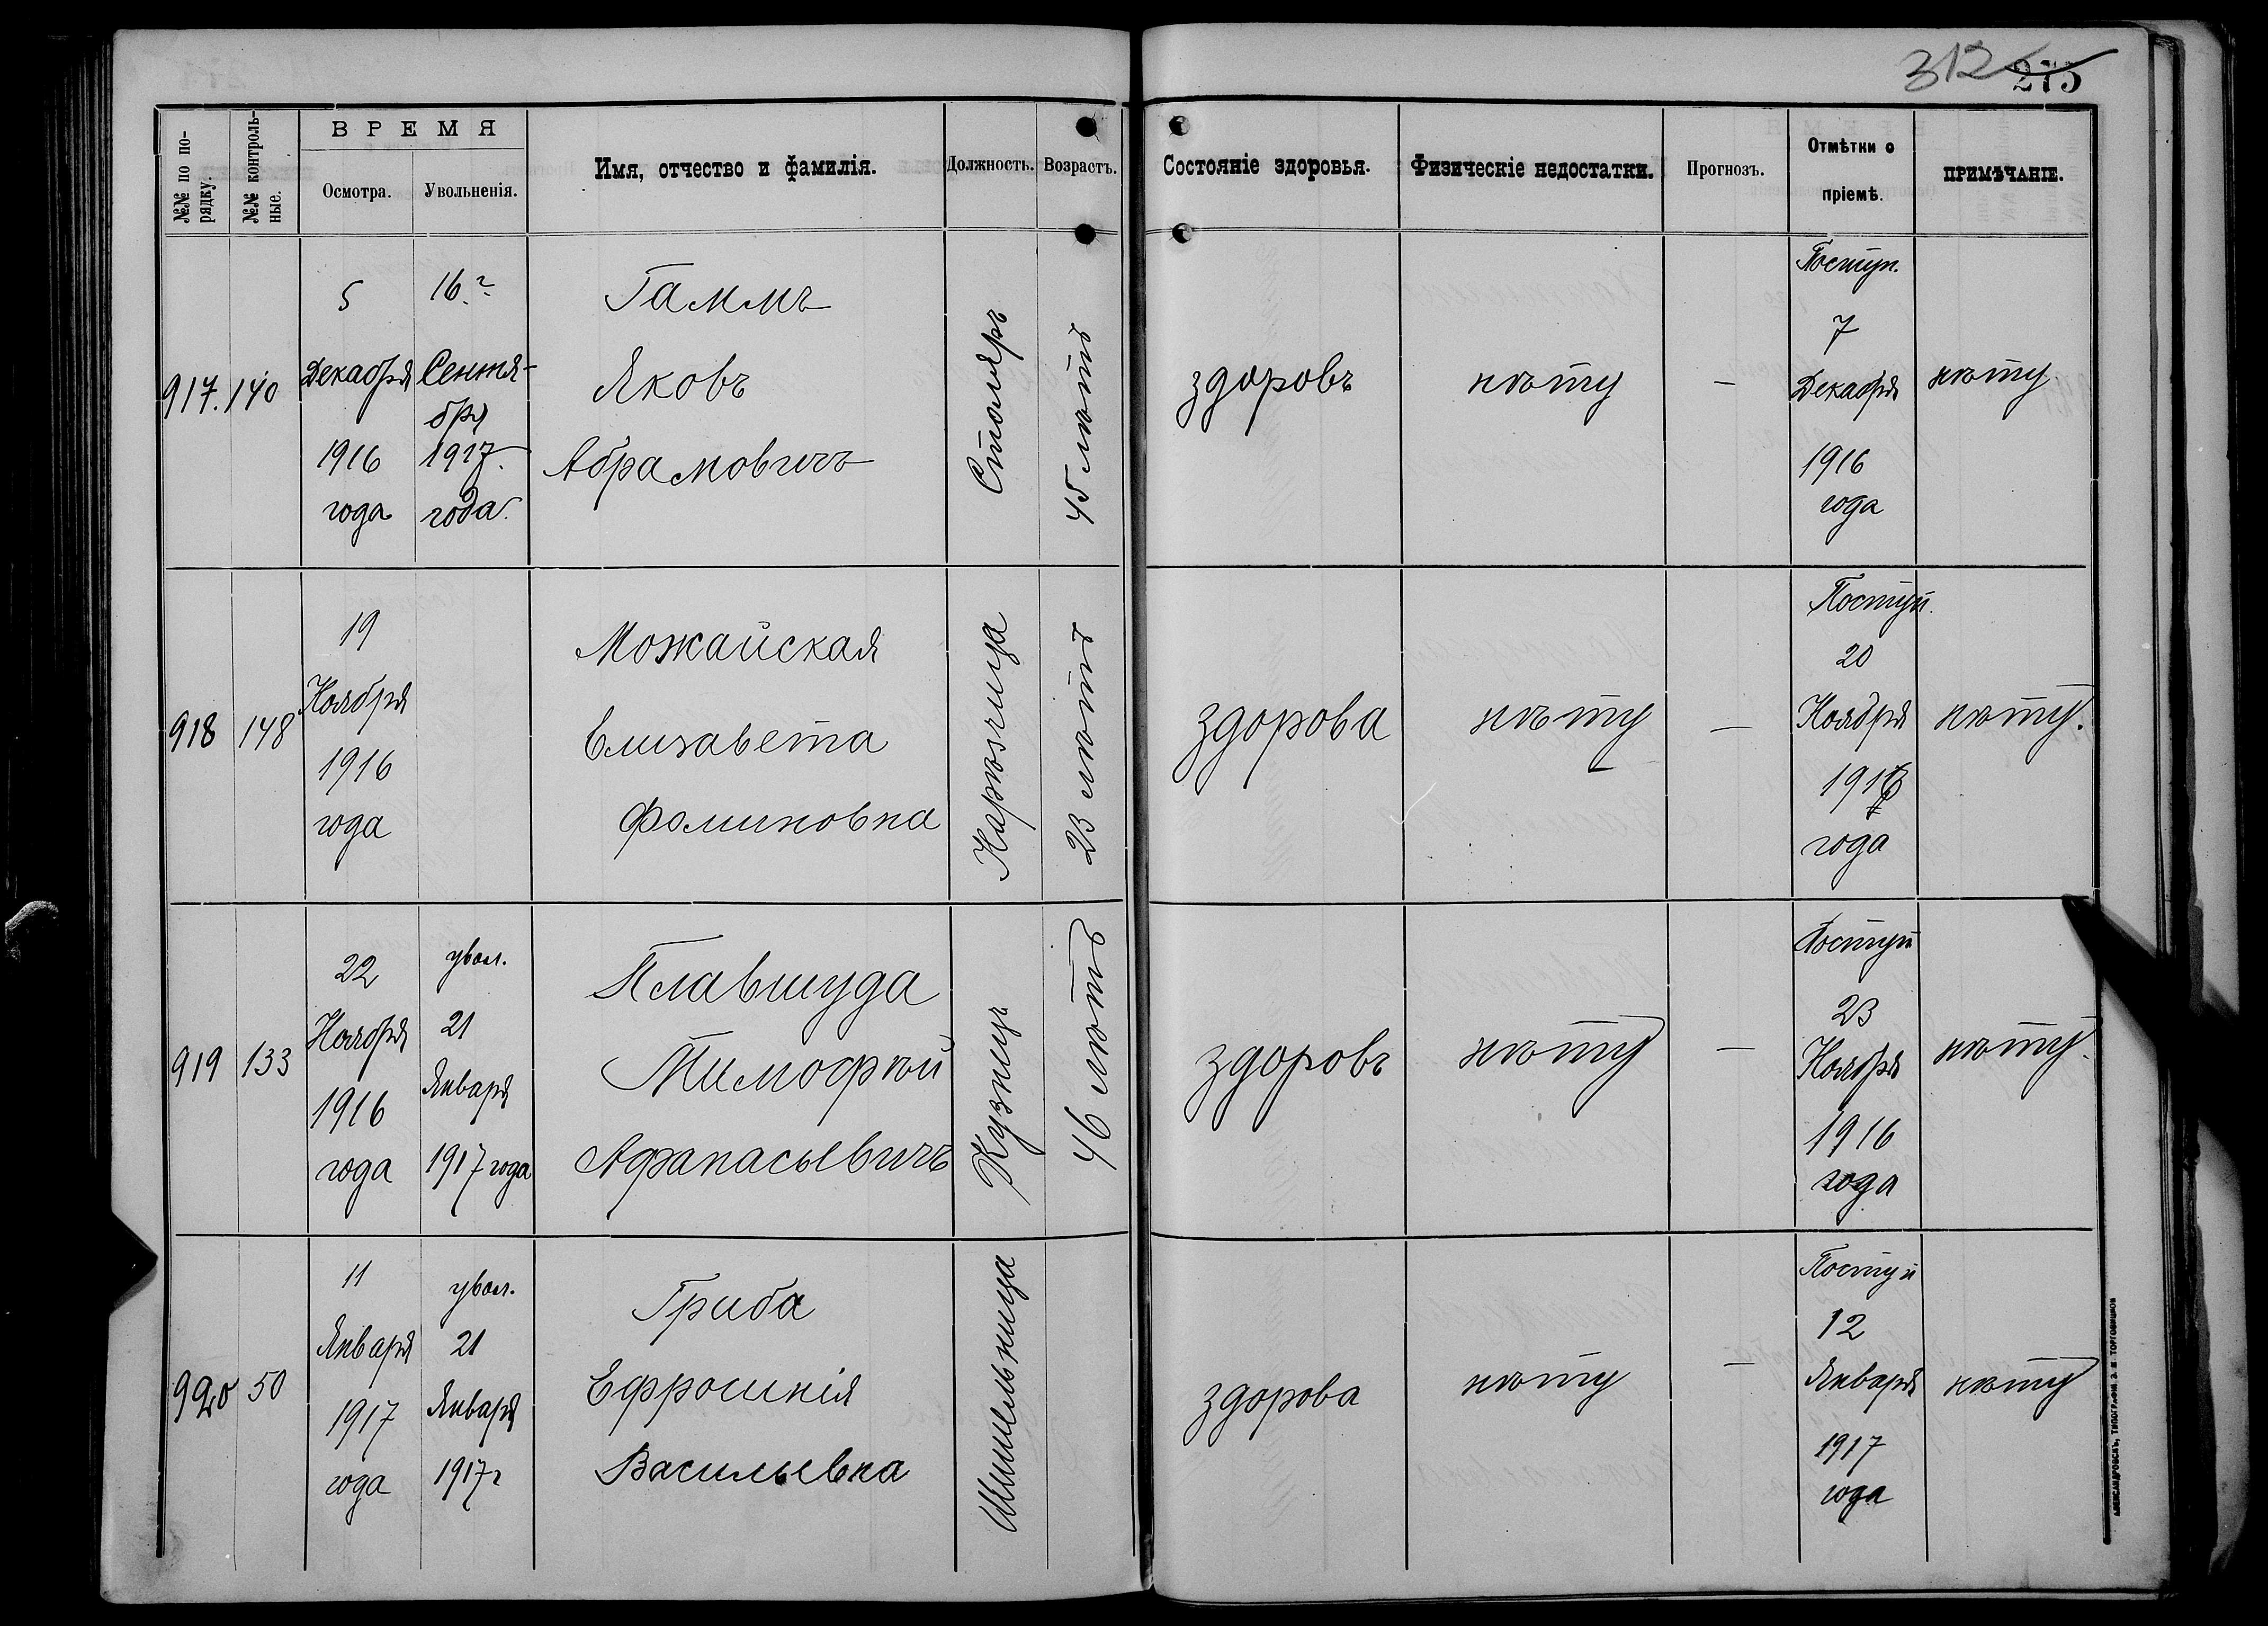 312 275
№№ по по-
рядку.
№№ контроль-
ные.
ВРЕМЯ
Осмотра.
Увольненія.
Имя, отчество и фамилія.
Должность.
Возрастъ.
Состояніе здоровья.
Физическіе недостатки.
Прогнозъ.
Отмѣтки о
пріемѣ.
ПРИМѢЧАНІЕ.
917.
140
5
Декабря
1916
года
16 г
Сентя-
бря
1917.
года.
Гаммъ
Яковъ
Абрамовичъ
Столяръ
45 лѣтъ
здоровъ
нѣту
—
Поступ.
7
Декабря
1916
года
нѣту
918
148
19
Ноября
1916
года
Можайская
Елизавета
Фоминовна
23 лѣтъ
здорова
нѣту
—
Поступ.
20
Ноября
1916
года
нѣту.
919
133
22
Ноября
1916
года
увол.
21
Января
1917 года
Плавшуда
Тимофѣй
Афанасьевичъ
Кузнецъ
46 лѣтъ
здоровъ
нѣту
—
Поступ
23
Ноября
1916
года
нѣту.
920
50
11
Января
1917
года
увол.
21
Января
1917 г
Гриба
Ефросинія
Васильевна
Шпильница
здорова
нѣту
—
Поступ
12
Января
1917
года
нѣту
АЛЕКСАНДРОВСКЪ, ТИПОГРАФІЯ Э. И. ТОРГОВИЦКОВ